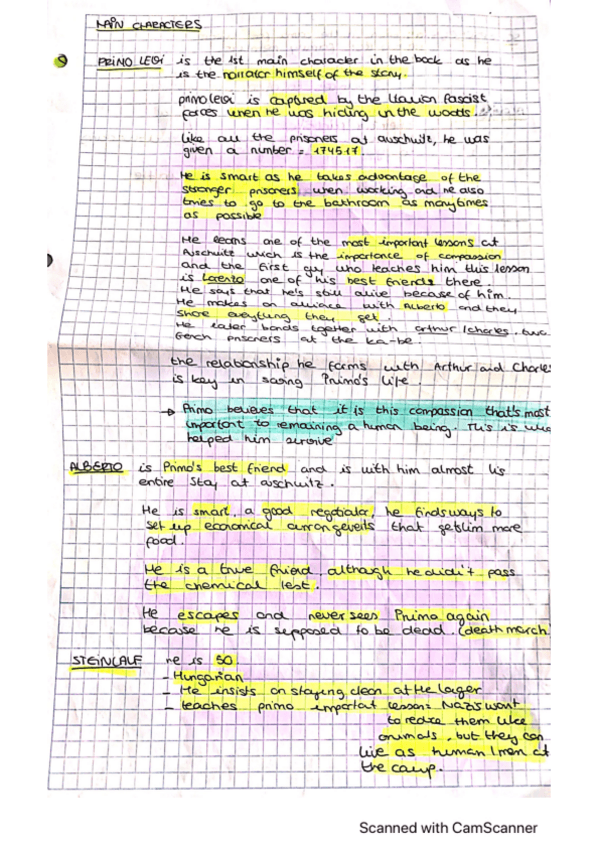 MAIN CHARACTERS
PRIMO LEVI is the 1st main character in the book as he
is the narrator himself of the story.
primo levi is captured by the Italian fascist
forces when he was hiding in the woods.
Like all the prisoners at auschwitz, he was
given a number = 174517.
He is smart as he takes advantage of the
stronger prisoners when working and he also
tries to go to the bathroom as many times
as possible
He learns one of the most important lessons at
Auschwitz wich is the importance of compassion
and the first guy who teaches him this lesson
is Lorenzo one of his best friends there.
He says that he's still alive because of him.
He makes an alliance with Alberto and they
share everything they get.
He later bonds together with arthur/charles, two
french prisoners at the ka-be.
the relationship he forms with Arthur and Charles
is key in saving Primo's life.
→ Primo believes that it is this compassion that's most
important to remaining a human being. This is what
helped him survive
ALBERTO is Primo's best friend and is with him almost his
entire stay at auschwitz.
He is smart, a good negotiator, he finds ways to
set up economical arrangements that get him more
food.
He is a true friend although he didn't pass
the chemical test.
He escapes and never sees Primo again
because he is supposed to be dead. (death march)
STEINLAUF he is 50.
- Hungarian
- He insists on staying clean at the lager
- teaches primo important lesson: Nazis want
to reduce them like
animals, but they can
live as human/men at
the camp.
Scanned with CamScanner